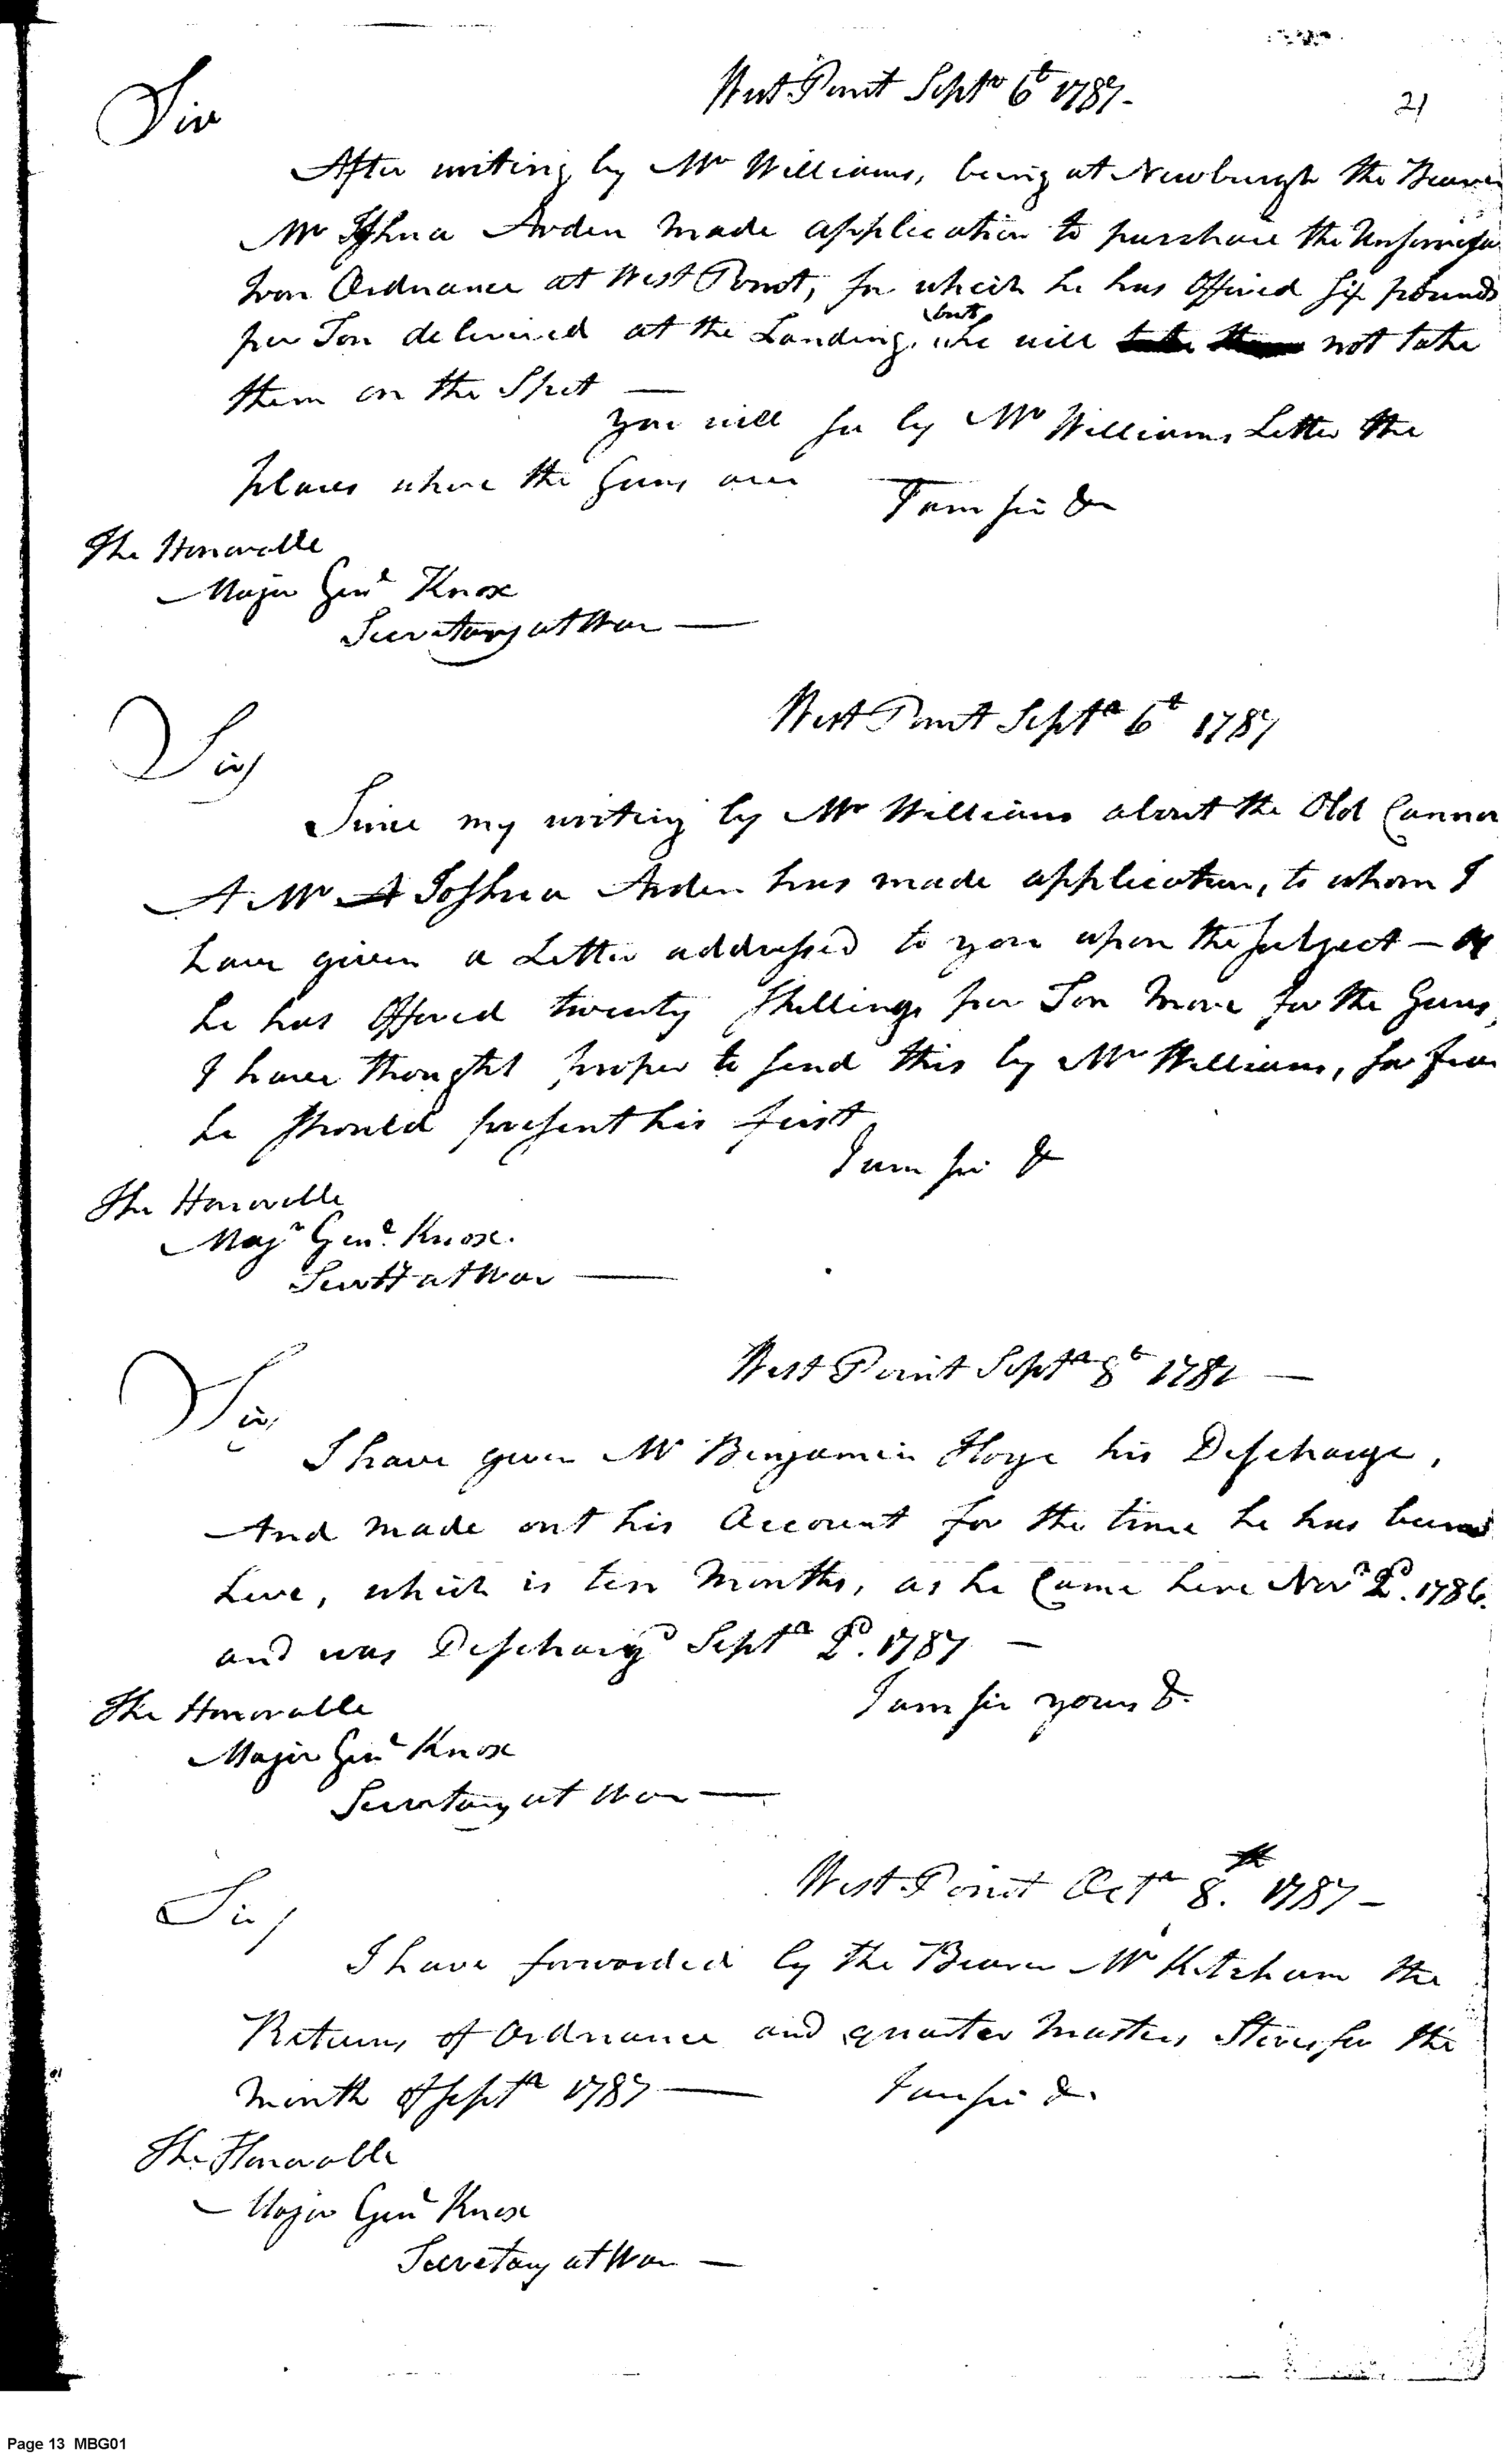 21
West Point Septr 6t 1787-
Sir
After writing by Mr Williams, being at Newburgh the Bearer
Mr Joshua Arden made application to purchase the
Iron Ordnance at West Point, for which he has Offered six pounds
per Ton delivered at the Landing, but he will not take
them on the Spot —
you will see by Mr Williams Letter the
places where the Guns are
I am sir &c
The Honorable
Major Genl Knox
Secretary at War —
West Point Septr 6t 1787
Sir
Since my writing by Mr Williams about the Old Cannon
A Mr A Joshua Arden has made application, to whom I
have given a Letter addressed to you upon the subject — as
he has Offered twenty shillings per Ton More for the Guns,
I have thought proper to send this by Mr Williams, for fear
he should present his first
I am sir &
The Honorable
Majr Genl. Knox.
at War —
West Point Septr 8t 1787 —
Sir,
I have given Mr Benjamin Hoge his Discharge,
And made out his Account for the time he has been
here, which is ten Months, as he Came here Novr 2d. 1786.
and was Discharg'd Septr 2d. 1787 —
I am sir yours &.
The Honorable
Major Genl Knox
Secretary at War —
West Point Octr 8.th 1787 —
Sir/
I have forwarded by the Bearer Mr Ketcham the
Returns of Ordnance and quarter Masters Stores for the
Month of Septr 1787 —
I am sir &.
The Honorable
Major Genl Knox
Secretary at War —
Page 13 MBG01